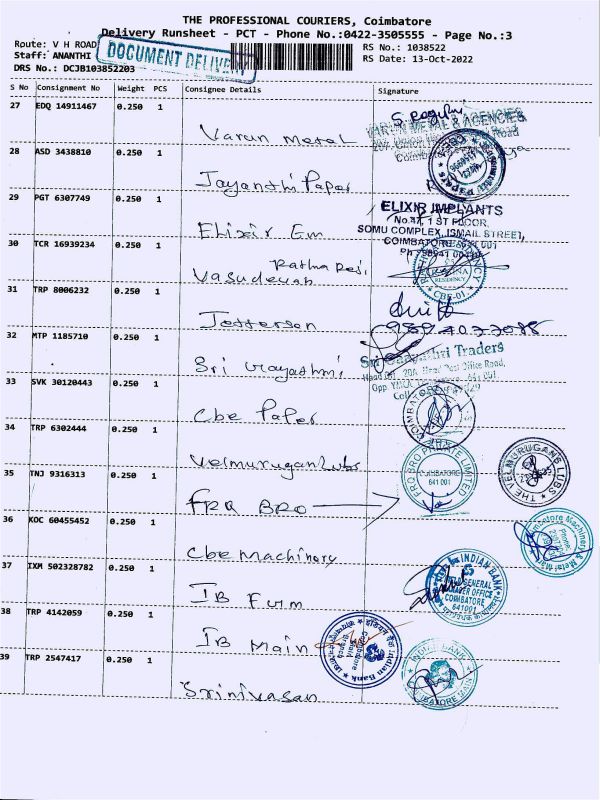 THE PROFESSIONAL COURIERS, Coimbatore
Delivery Runsheet - PCT - Phone No.:0422-3505555 - Page No.:3
Route: V H ROAD
RS No.: 1038522
Staff: ANANTHI
RS Date: 13-Oct-2022
DRS No.: DCJB103852203
DOCUMENT DELIVERY
S No Consignment No Weight PCS Consignee Details Signature
27 EDQ 14911467 0.250 1
Varun metal
VARUN METAL & AGENCIES
28 ASD 3438810 0.250 1
Jayanthi Paper
29 PGT 6307749 0.250 1
Elixir Em
ELIXIR IMPLANTS
No.47, 1 ST FLOOR,
SOMU COMPLEX, ISMAIL STREET,
COIMBATORE 641 001
30 TCR 16939234 0.250 1
Vasudevan Rathna Resi,
RESIDENCY
CBE-01
31 TRP 8006232 0.250 1
Jefferson
32 MTP 1185710 0.250 1
Sri Vigayashmi
Traders
Head Post Office Road,
33 SVK 30120443 0.250 1
Cbe Paper
COIMBATORE
34 TRP 6302444 0.250 1
Velmurugan Lubs
THE VELMURUGANS LUBS
35 TNJ 9316313 0.250 1
FRQ BRO
FRQ SRO PRIVATE LIMITED
COIMBATORE
641 001
36 KOC 60455452 0.250 1
Cbe Machinory
Coimbatore Machinery &
Metal Mart
37 IXM 502328782 0.250 1
IB Furm
INDIAN BANK
FIELD GENERAL
MANAGER OFFICE
COIMBATORE,
641001
38 TRP 4142059 0.250 1
IB Main
इंडियन बैंक Indian Bank
Coimbatore
Main Branch
39 TRP 2547417 0.250 1
Srinivasan
INDIAN BANK
COIMBATORE MAIN